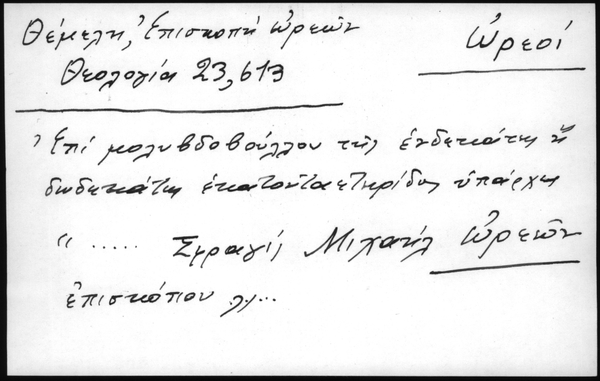 Θέμελη, Ἐπισκοπή Ὠρεῶν
Ὠρεοί
Θεολογία 23, 613
Ἐπί μολυβδοβούλλου τῆς ἑνδεκάτης ἤ
δωδεκάτης ἑκατονταετηρίδος ὑπάρχει
“ ..... Σφραγίς Μιχαήλ Ὠρεῶν
ἐπισκόπου „...